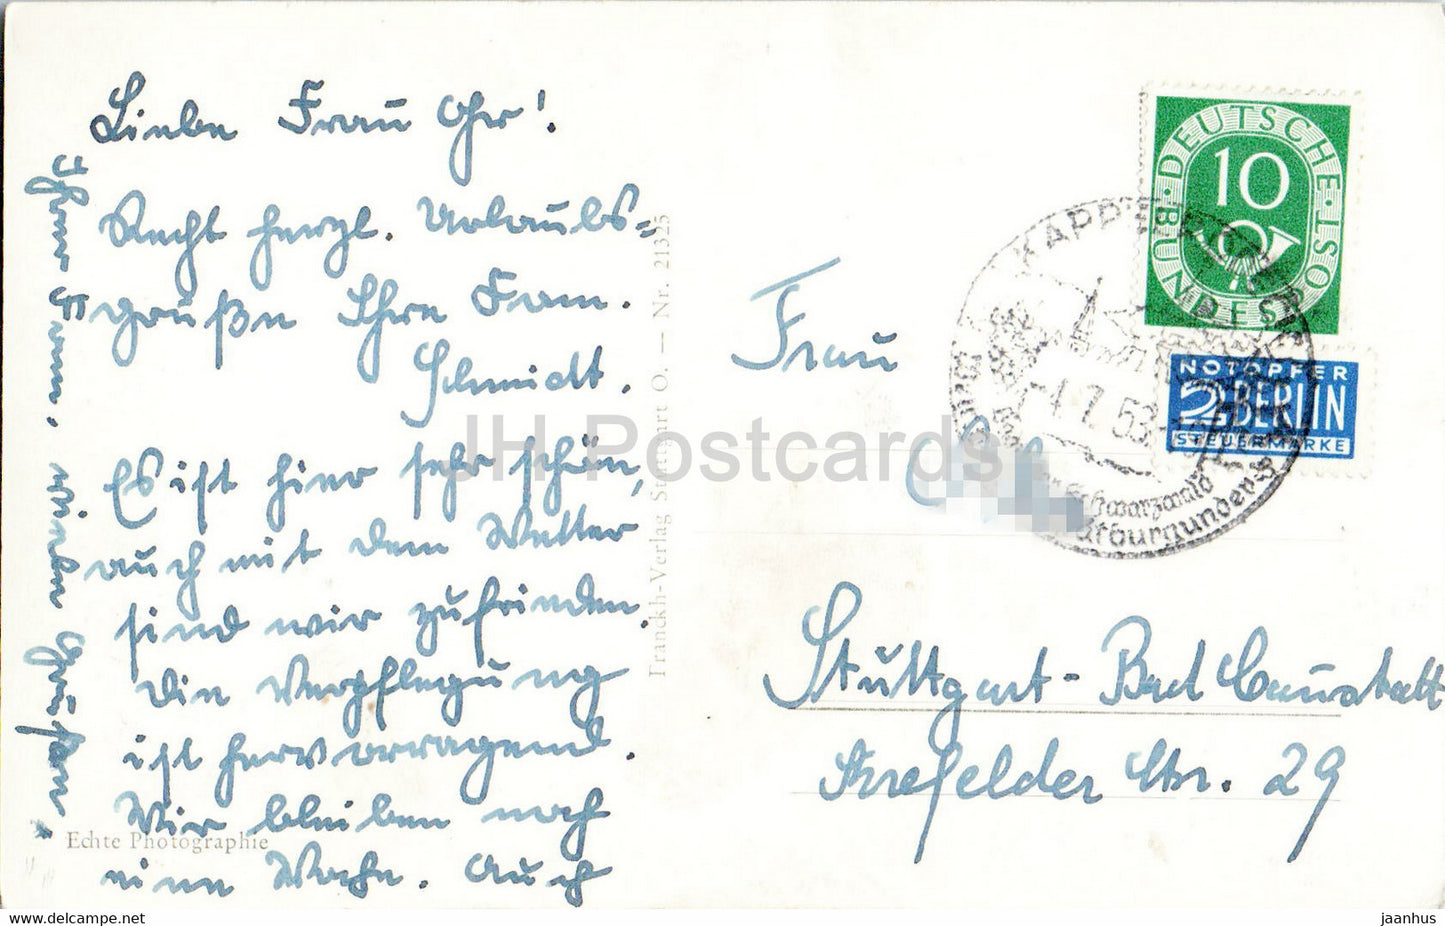 Liebe Frau Ohr!
Recht herzl. Urlaubs=
grüße Ihre Fam.
Schmidt.
Es ist hier sehr schön,
auch mit dem Wetter
sind wir zufrieden.
Die Verpflegung
ist hervorragend.
Wir bleiben noch
eine Woche. Auch
Ihrem Mann, viele Grüße.
Echte Photographie
Franckh-Verlag Stuttgart O. — Nr. 21325
JH Postcards
DEUTSCHE BUNDESPOST
10
NOTOPFER
2 BERLIN
STEUERMARKE
KAPPELRODECK
4.7.53
Schwarzwald
Frau
Stuttgart-Bad Cannstatt
Krefelder Str. 29
jaanhus
www.jhpostcards.com